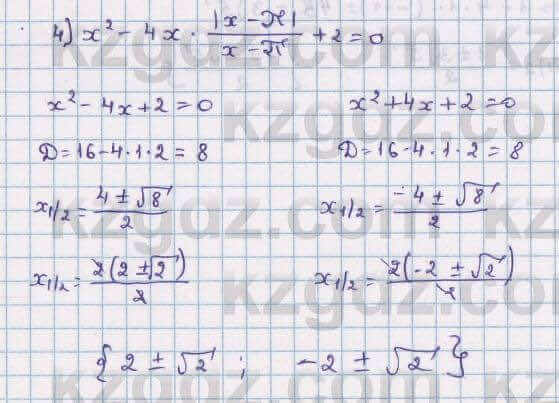 4) x² - 4x · |x - π| / (x - π) + 2 = 0
x² - 4x + 2 = 0    x² + 4x + 2 = 0
D = 16 - 4·1·2 = 8    D = 16 - 4·1·2 = 8
x₁/₂ = (4 ± √8) / 2    x₁/₂ = (-4 ± √8) / 2
x₁/₂ = 2(2 ± √2) / 2    x₁/₂ = 2(-2 ± √2) / 2
{ 2 ± √2 ; -2 ± √2 }
kzgdz.com